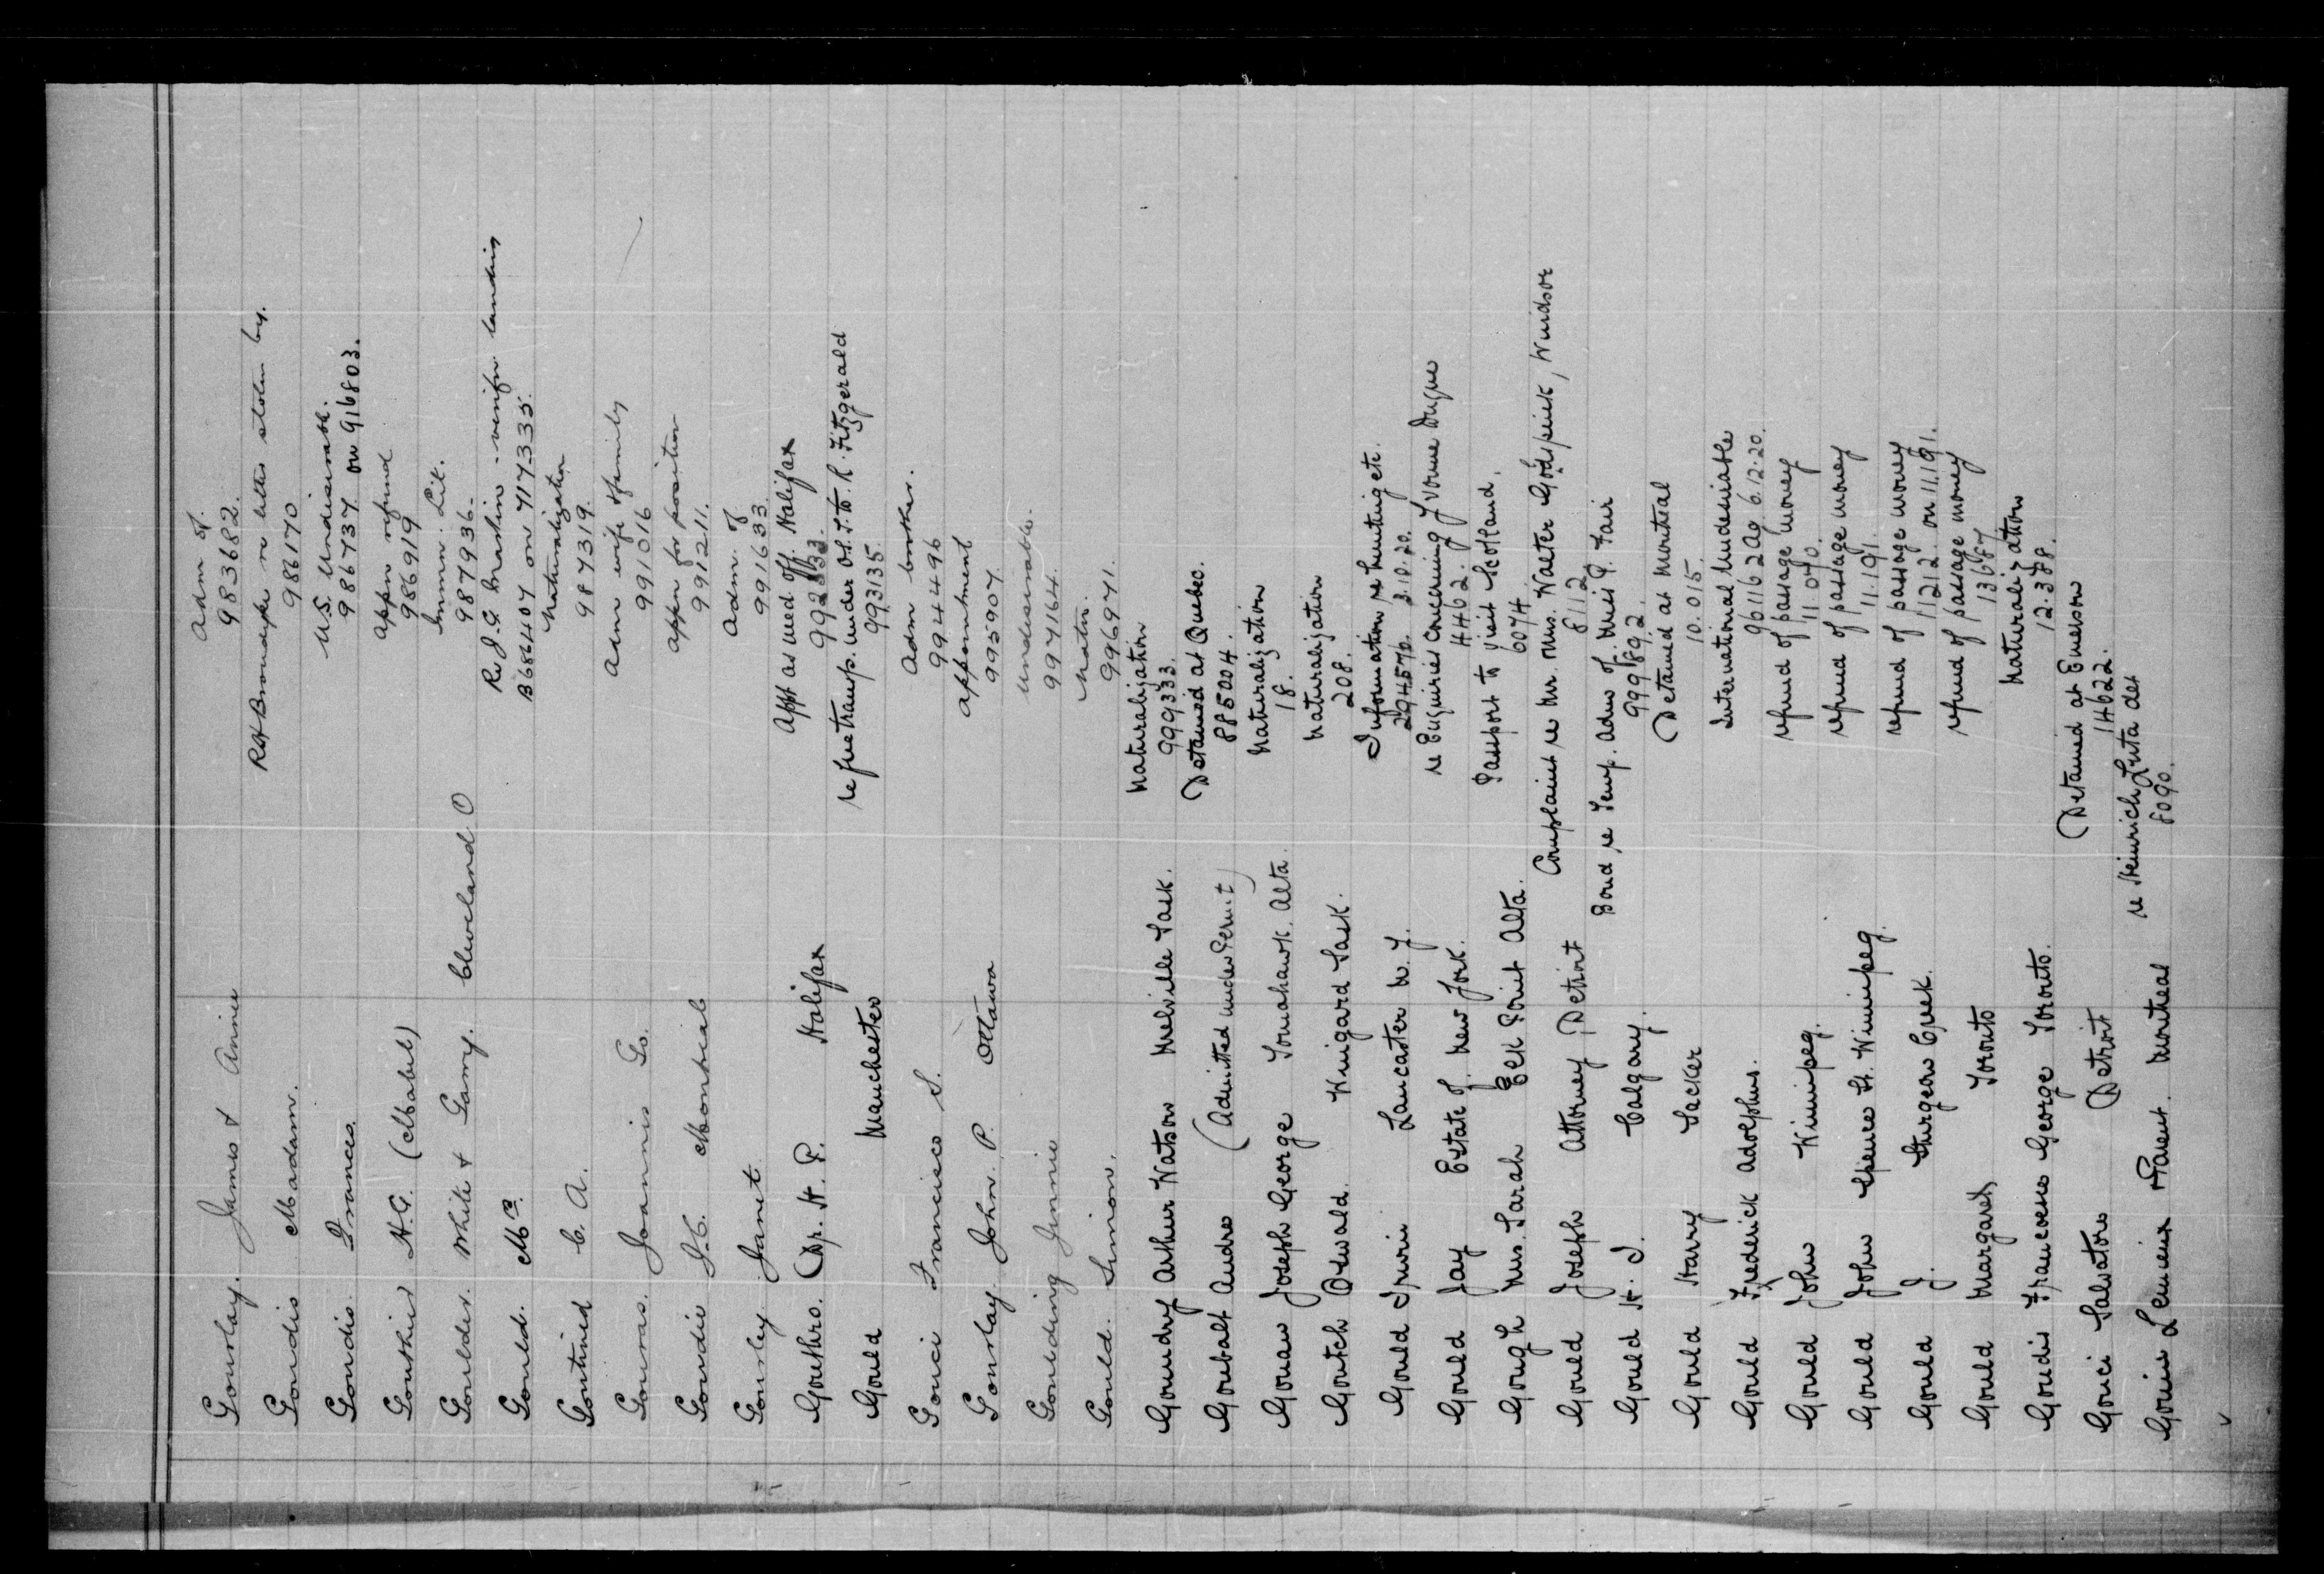 Gourlay. James & Annie Adm of.
983682.
Goudie Madam. Ret Bronaxpke re letter stolen by.
986170
Goudie. Frances. U.S. Undesirable.
986737 on 916803.
Gouthier H.G. (Mabel) appn refund
986919
Goulder. White & Garry. Cleveland O Immn. Lit.
987936.
Gould. Mrs. Re J.G. Maskin - verifn landing
B686407 on 717335.
Gontined C. A. Naturalization
987319.
Gouras. Joannis Go. Adm wife & family
991016
Goudie J.C. Montreal appn for position
991211.
Gourley Janet Adm. of
991633
Gouthro. (Dr. H. P. Halifax Appt as Med Off. Halifax
992833.
Gould Manchester re free transp. under O.S.S. to R. Fitzgerald
993135
Gouci Francisco S. Adm brother.
994496
Gourlay John. P. Ottawa appointment
995907
Goulding Jinnie Undesirable.
997164.
Gould. Simon. Natn.
996971.
Goundry Arthur Watson Melville Sask. Naturalization
999333.
Goubalt Andre (Admitted under Permit) Detained at Quebec.
885004.
Gouaw Joseph George Tomahawk. Alta. Naturalization
18.
Goutch Oswald. Kuigard Sask. Naturalization
208.
Gould Irwin Lancaster N.Y. Information re hunting etc.
294570. 3.10.20.
Gould Jay Estate of. New York. re Enquiries concerning Yvonne Dugue
4462.
Gough Mrs. Sarah Elk Point Alta. Passport to visit Scotland.
6074.
Gould Joseph Attorney Detroit Complaint re Mr. Mrs. Walter Goldspink, Windsor
8112
Gould H. J. Calgary. Bond re Temp. Adm of Miss P. Fair
999892.
Gould Harry Sacker Detained at Montreal
10.015.
Gould Frederick Adolphus. International Undesirable
961162 Ag. 6.12.20.
Gould John Winnipeg. refund of passage money
11 070.
Gould John Spence St. Winnipeg. refund of passage money
11.191.
Gould J. Sturgeon Creek. refund of passage money
11212. on 11.191.
Gould Margaret Toronto refund of passage money
13687
Goudie Francoeus George Toronto. Naturalization
12.388.
Gouci Salvatore Detroit Detained at Emerson
14622.
Gouin Lemieux & Parent. Montreal re Heinrich Luta det
8090.